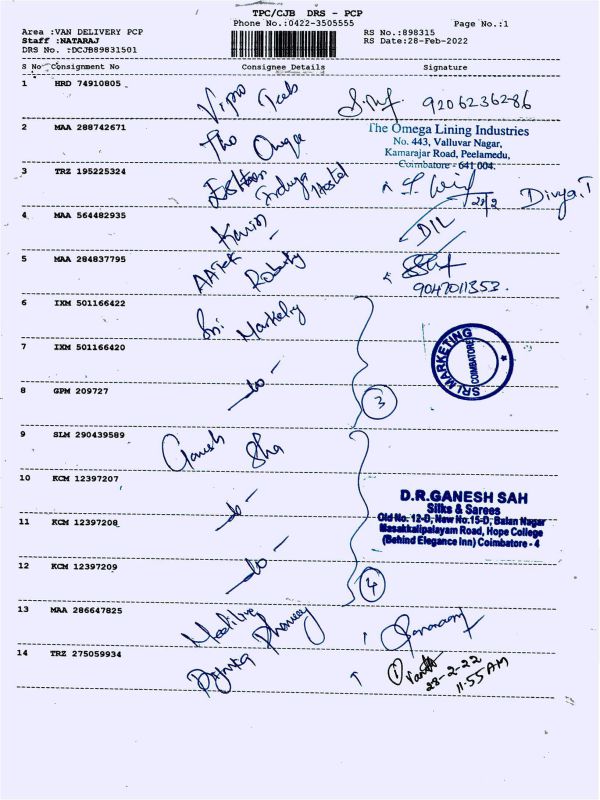 TPC/CJB DRS - PCP
Phone No.:0422-3505555
Page No.:1
Area :VAN DELIVERY PCP
Staff :NATARAJ
DRS No. :DCJB89831501
RS No.:898315
RS Date:28-Feb-2022
S No Consignment No Consignee Details Signature
1 HRD 74910805 Wipro 9206236286
2 MAA 288742671 The Omega
The Omega Lining Industries
No. 443, Valluvar Nagar,
Kamarajar Road, Peelamedu,
Coimbatore - 641 004.
3 TRZ 195225324 Hostel Divya.T
4 MAA 564482935 DIL
5 MAA 284837795 9047011353.
6 IXM 501166422 Sri Marketing
7 IXM 501166420 -do-
SRI MARKETING
COIMBATORE
8 GPM 209727 3
9 SLM 290439589 Ganesh Sha
10 KCM 12397207 -do-
D.R.GANESH SAH
Silks & Sarees
Old No. 12-D, New No.15-D, Balan Nagar
Masakkalipalayam Road, Hope College
(Behind Elegance Inn) Coimbatore - 4
11 KCM 12397208 -do-
12 KCM 12397209 4
13 MAA 286647825
14 TRZ 275059934
28-2-22
11.55 AM